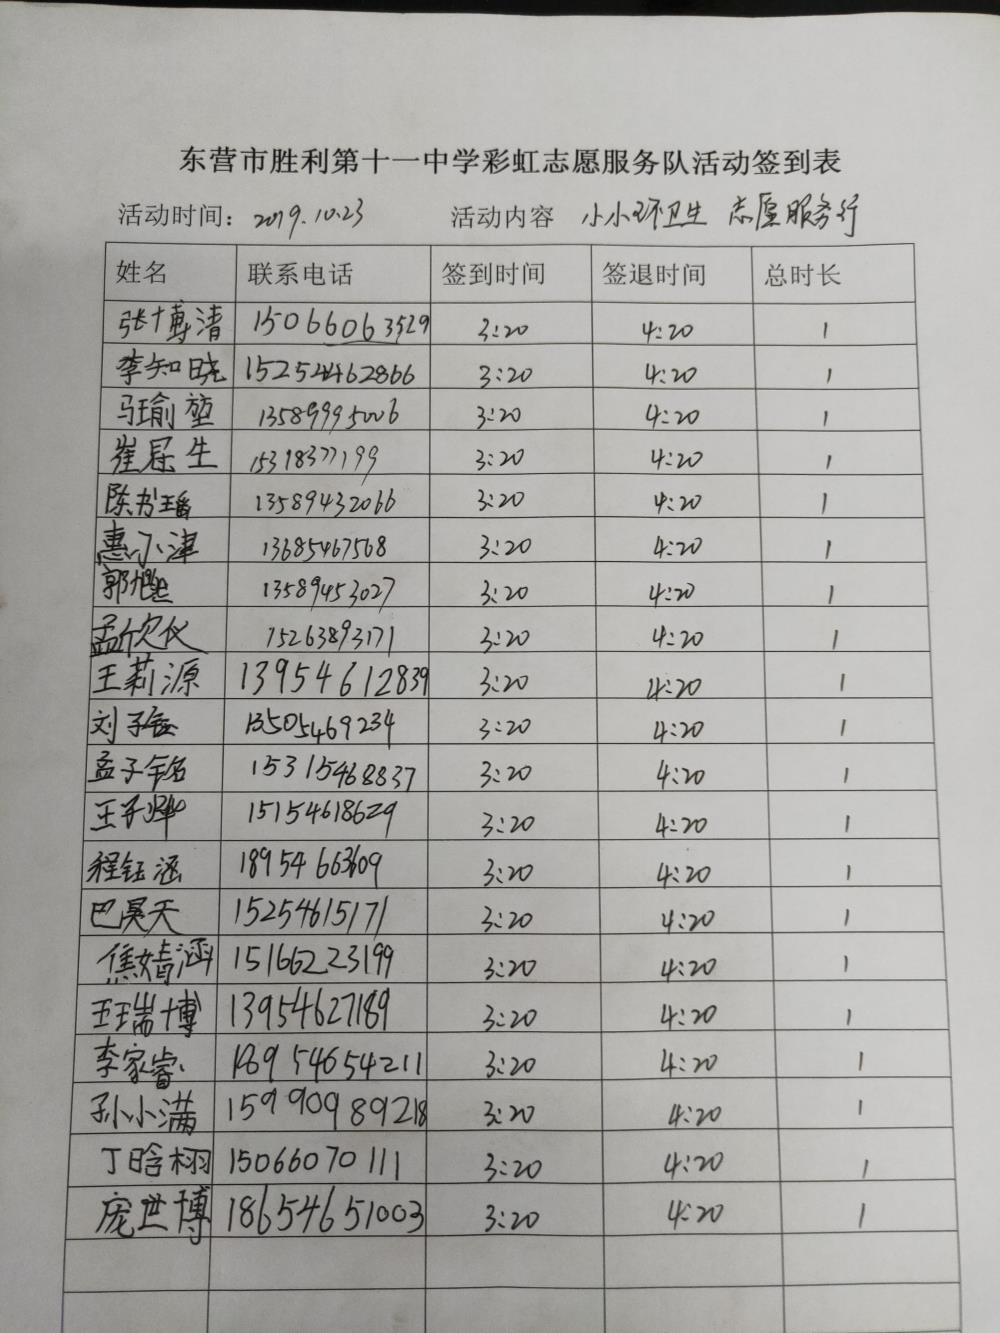 东营市胜利第十一中学彩虹志愿服务队活动签到表
活动时间: 2019.10.23 活动内容 小小环卫生 志愿服务行
姓名 联系电话 签到时间 签退时间 总时长
张博清 15066063529 3:20 4:20 1
李知晓 15254462866 3:20 4:20 1
马瑜堃 13589995006 3:20 4:20 1
崔冠生 15318377199 3:20 4:20 1
陈书璠 13589432066 3:20 4:20 1
惠小津 13685467568 3:20 4:20 1
郭 13589453027 3:20 4:20 1
孟欣仪 15263893171 3:20 4:20 1
王莉源 13954612839 3:20 4:20 1
刘子 13505469234 3:20 4:20 1
孟子铭 15315468837 3:20 4:20 1
王子烨 15154618629 3:20 4:20 1
程钰涵 18954663609 3:20 4:20 1
巴昊天 15254615171 3:20 4:20 1
焦婧涵 15166223199 3:20 4:20 1
王瑞博 13954627189 3:20 4:20 1
李家睿 18954654211 3:20 4:20 1
孙小满 15990989218 3:20 4:20 1
丁晗栩 15066070111 3:20 4:20 1
庞世博 18654651003 3:20 4:20 1